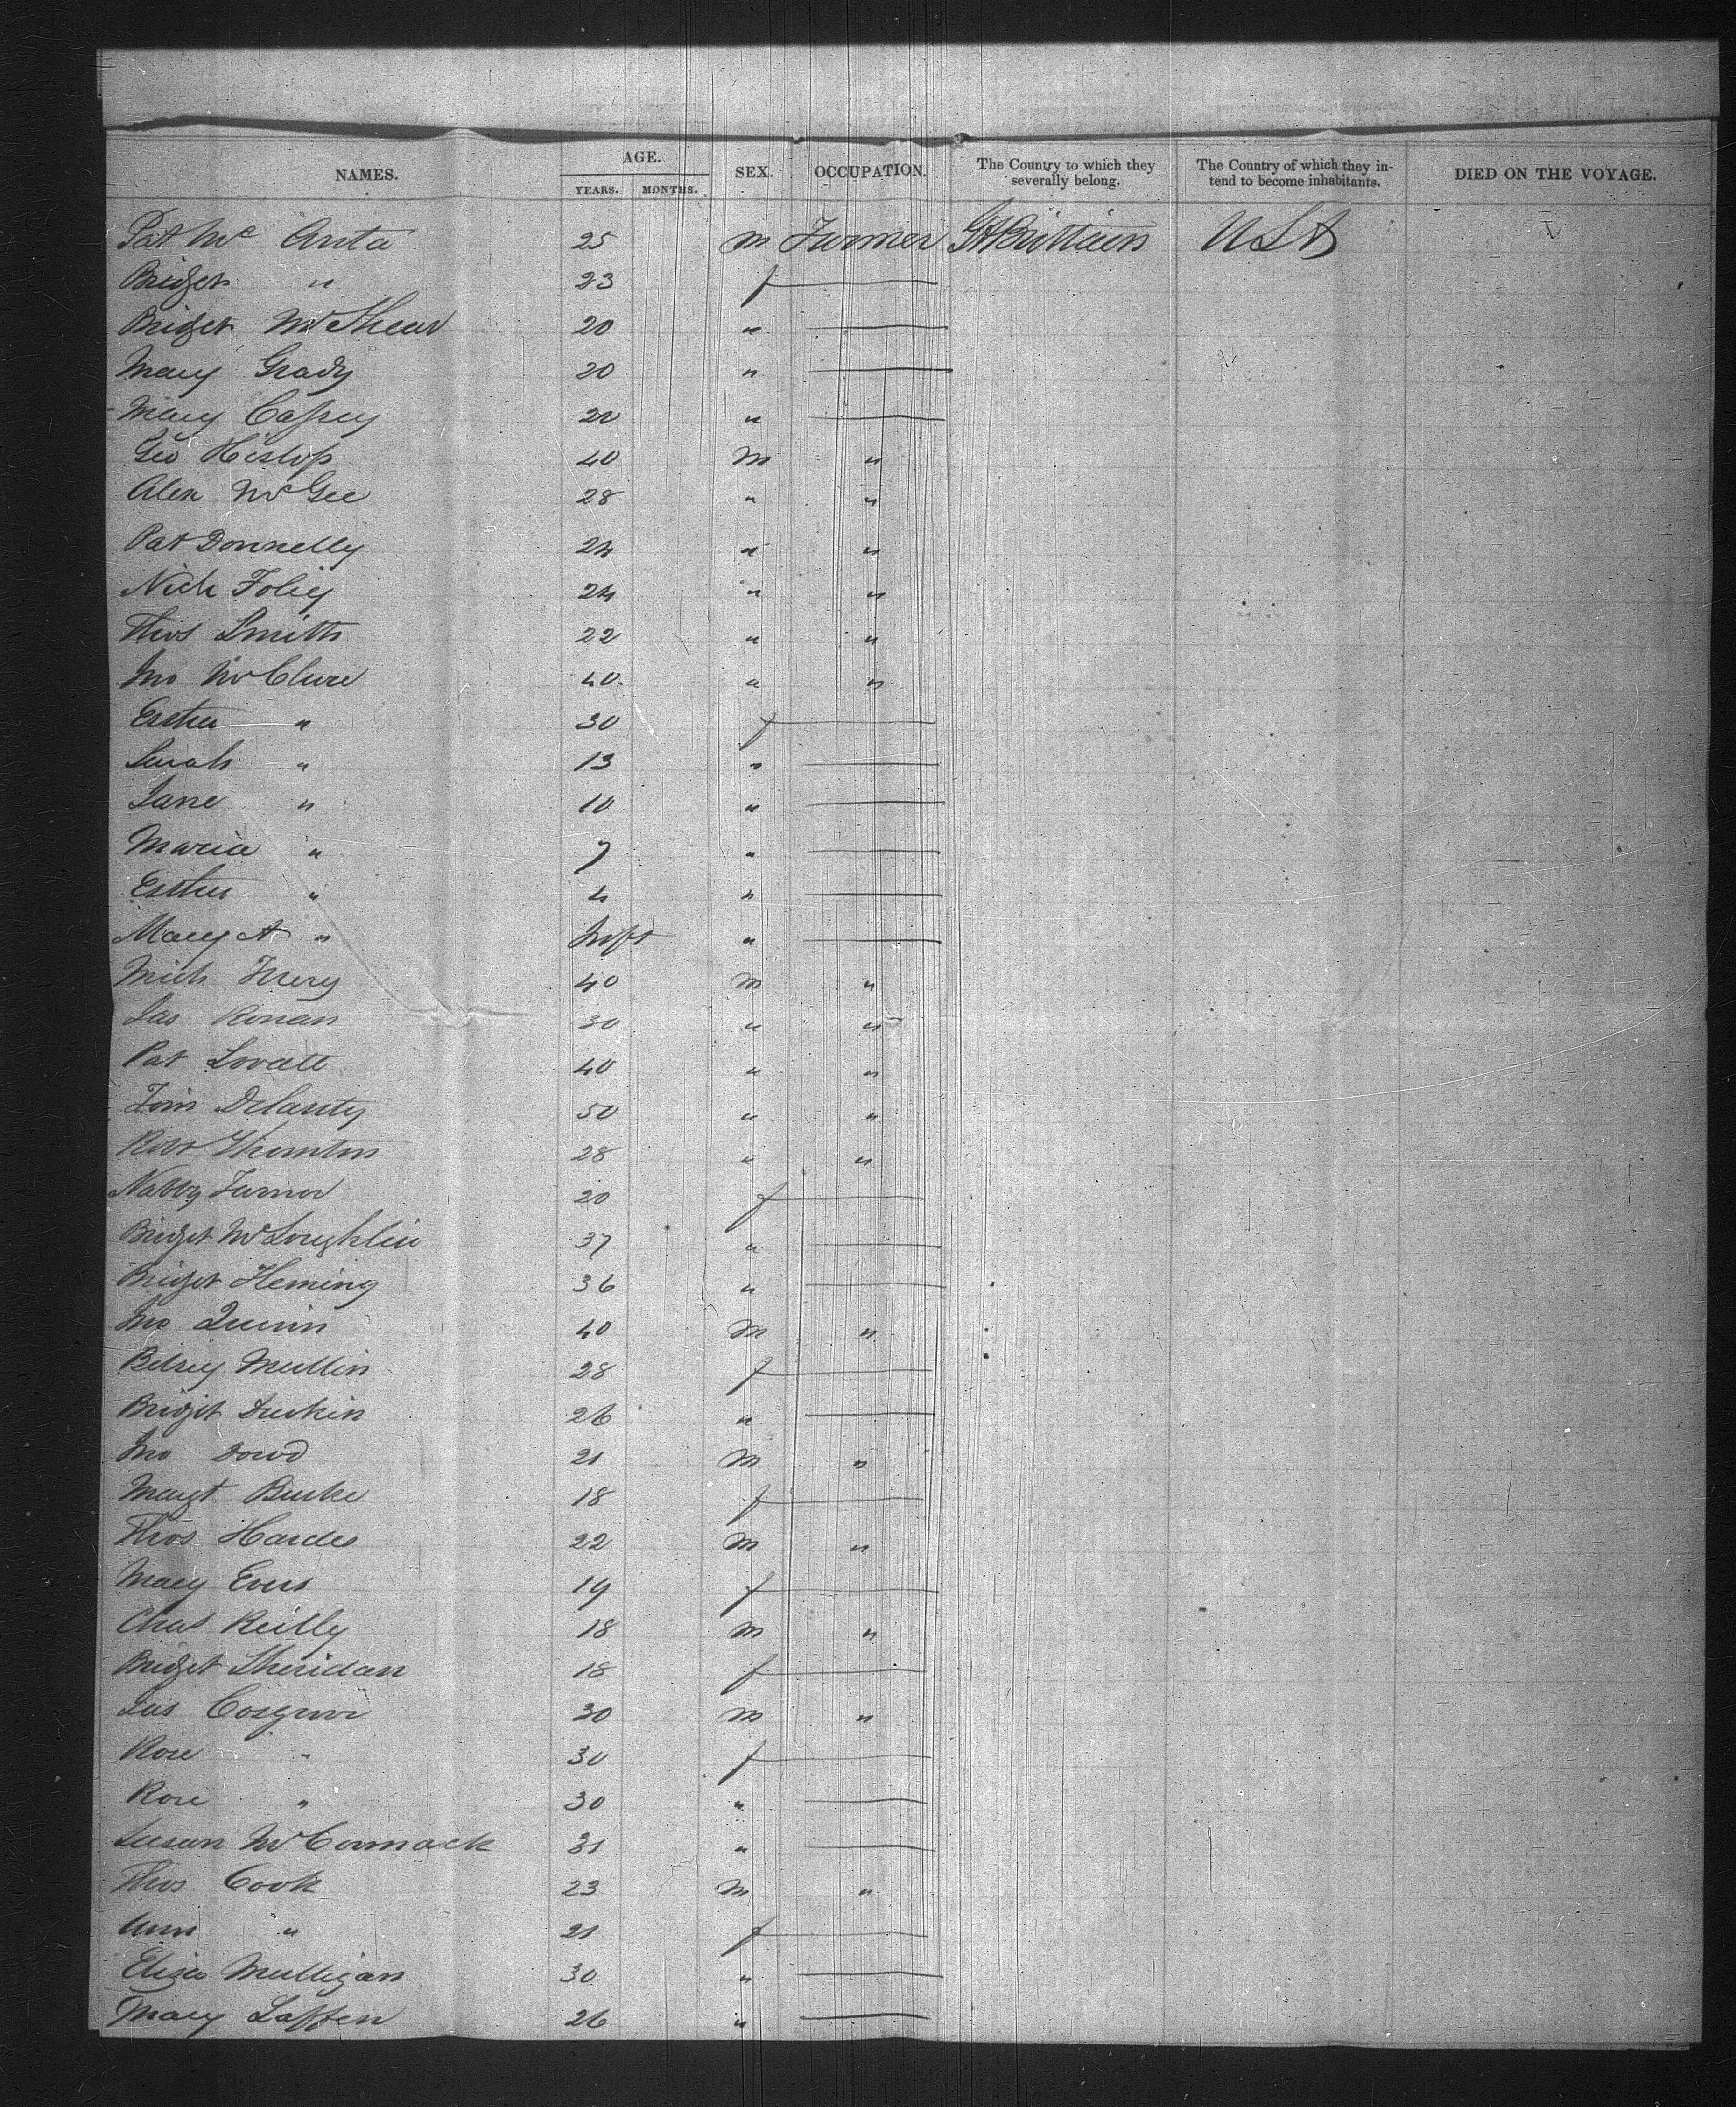 NAMES. AGE. YEARS. MONTHS. SEX. OCCUPATION. The Country to which they severally belong. The Country of which they intend to become inhabitants. DIED ON THE VOYAGE.
Pat Mc Anta 25 m Farmer Gt Brittain USA
Bridget " 23 f
Bridget McShear 20 "
Mary Grady 20 "
Mary Cassey 20 "
Geo Hislop 40 M "
Alex McGee 28 " "
Pat Donnelly 24 " "
Nich Foley 24 " "
Thos Smith 22 " "
Jno McClure 40 " "
Esther " 30 f
Sarah " 13 "
Jane " 10 "
Maria " 7 "
Esther " 4 "
Mary A " Inft "
Mich Furey 40 m "
Jas Ronan 30 " "
Pat Lovett 40 " "
Tim Delanty 50 " "
Robt Thornton 28 " "
Nabby 20 f
Bridget McLoughlin 37 "
Bridget Fleming 36 "
Jno Quinn 40 M "
Betsey Mullin 28 f
Bridget Durkin 26 "
Jno Dowd 21 M "
Margt Burke 18 f
Thos Hardes 22 M "
Mary Evers 19 f
Chas Reilly 18 M "
Bridget Sheridan 18 f
Jas Cosgrove 30 M "
Rose " 30 f
Rose " 30 "
Susan McCormack 31 "
Thos Cook 23 M "
Ann " 21 f
Eliza Mulligan 30 "
Mary Laffen 26 "